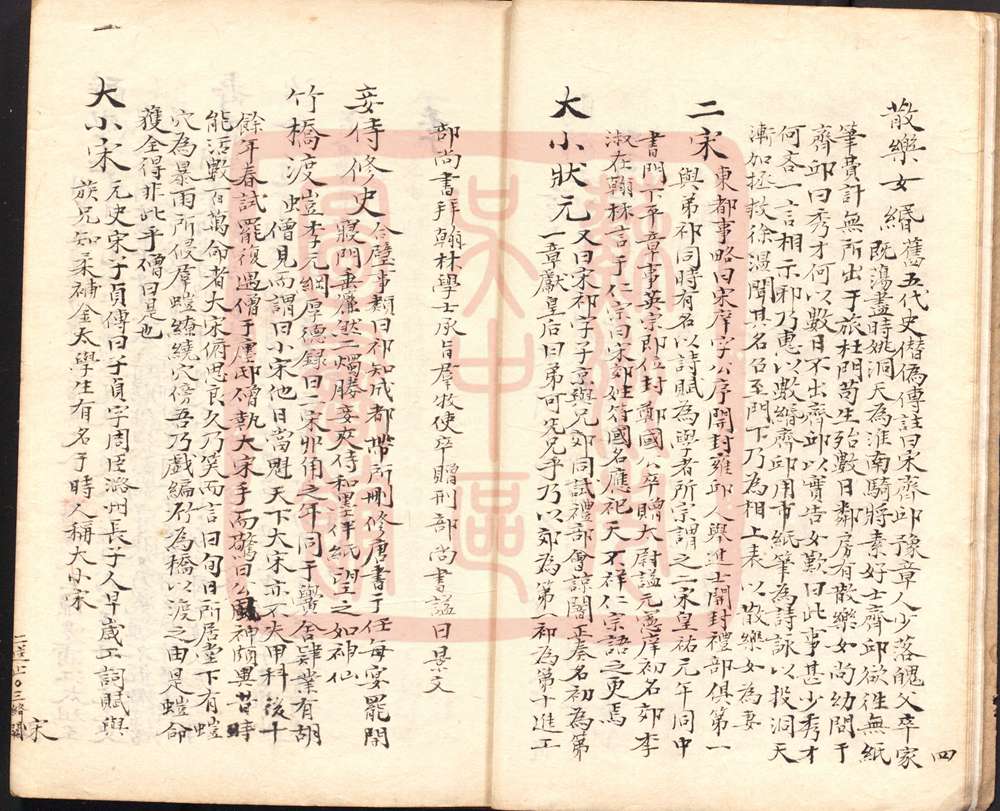 散樂女緡 舊五代史僭偽傳註曰宋齊邱豫章人少落魄父卒家
既蕩盡時姚洞天為淮南騎將素好士齊邱欲徃無紙
筆費計無所出于旅杜門茍生殆數日鄰房有散樂女尚幼問于
齊邱曰秀才何以數日不出齊邱以實告女歎曰此事甚少秀才
何吝一言相示邪乃惠以數緡齊邱用市紙筆為詩詠以投洞天
漸加拯救徐溫聞其名召至門下乃為相上表以散樂女為妻
二宋 東都事略曰宋庠字公序開封雍邱人舉進士開封禮部俱第一
與弟祁同時有名以詩賦為學者所宗謂之二宋皇祐元年同中
書門下平章事英宗即位封鄭國公卒贈大尉謚元憲庠初名郊李
淑在翰林言于仁宗曰宋郊姓符國名應祀天不祥仁宗語之更焉
大小狀元 又曰宋祁字子京與兄郊同試禮部會諒闇奏名初為第
一章獻皇后曰弟可先兄乎乃以郊為第一祁為第十進工
部尚書拜翰林學士承旨羣牧使卒贈刑部尚書謚曰景文
妾侍修史 合璧事類曰祁知成都帶所刪修唐書于任每宴罷開
寢門垂簾燃二燭媵妾夾侍和墨伸紙望之如神仙
竹橋渡螘 李元綱厚德錄曰二宋丱角之年同于黌舍肄業有胡
僧見而謂曰小宋他日當魁天下大宋亦不失甲科後十
餘年春試罷復遇僧于廛邸僧執大宋手而驚曰公風神頗異昔時
能活數百萬命者大宋俯思良久乃笑而言曰旬日所居堂下有螘
穴為暴雨所侵羣螘繚繞穴傍吾乃戲編竹為橋以渡之由是螘命
獲全得非此乎僧曰是也
大小宋 元史宋子貞傳曰子貞字周臣潞州長子人早歲工詞賦與
族兄知柔補金太學生有名于時人稱大小宋
宋
四